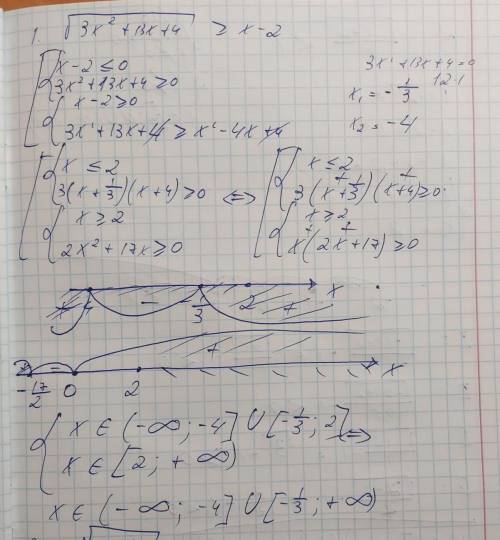 1. √(3x² + 13x + 4) ≥ x - 2
x - 2 ≤ 0
3x² + 13x + 4 ≥ 0
x - 2 ≥ 0
3x² + 13x + 4 ≥ x² - 4x + 4
3x² + 13x + 4 = 0
121
x₁ = - 1/3
x₂ = -4
x ≤ 2
3(x + 1/3)(x + 4) ≥ 0
x ≥ 2
2x² + 17x ≥ 0
⇔
x ≤ 2
3(x + 1/3)(x + 4) ≥ 0
x ≥ 2
x(2x + 17) ≥ 0
+ -4 - -1/3 2 + x
- + x
-17/2 0 2
x ∈ (-∞; -4] ∪ [-1/3; 2] ⇔
x ∈ [2; +∞)
x ∈ (-∞; -4] ∪ [-1/3; +∞)